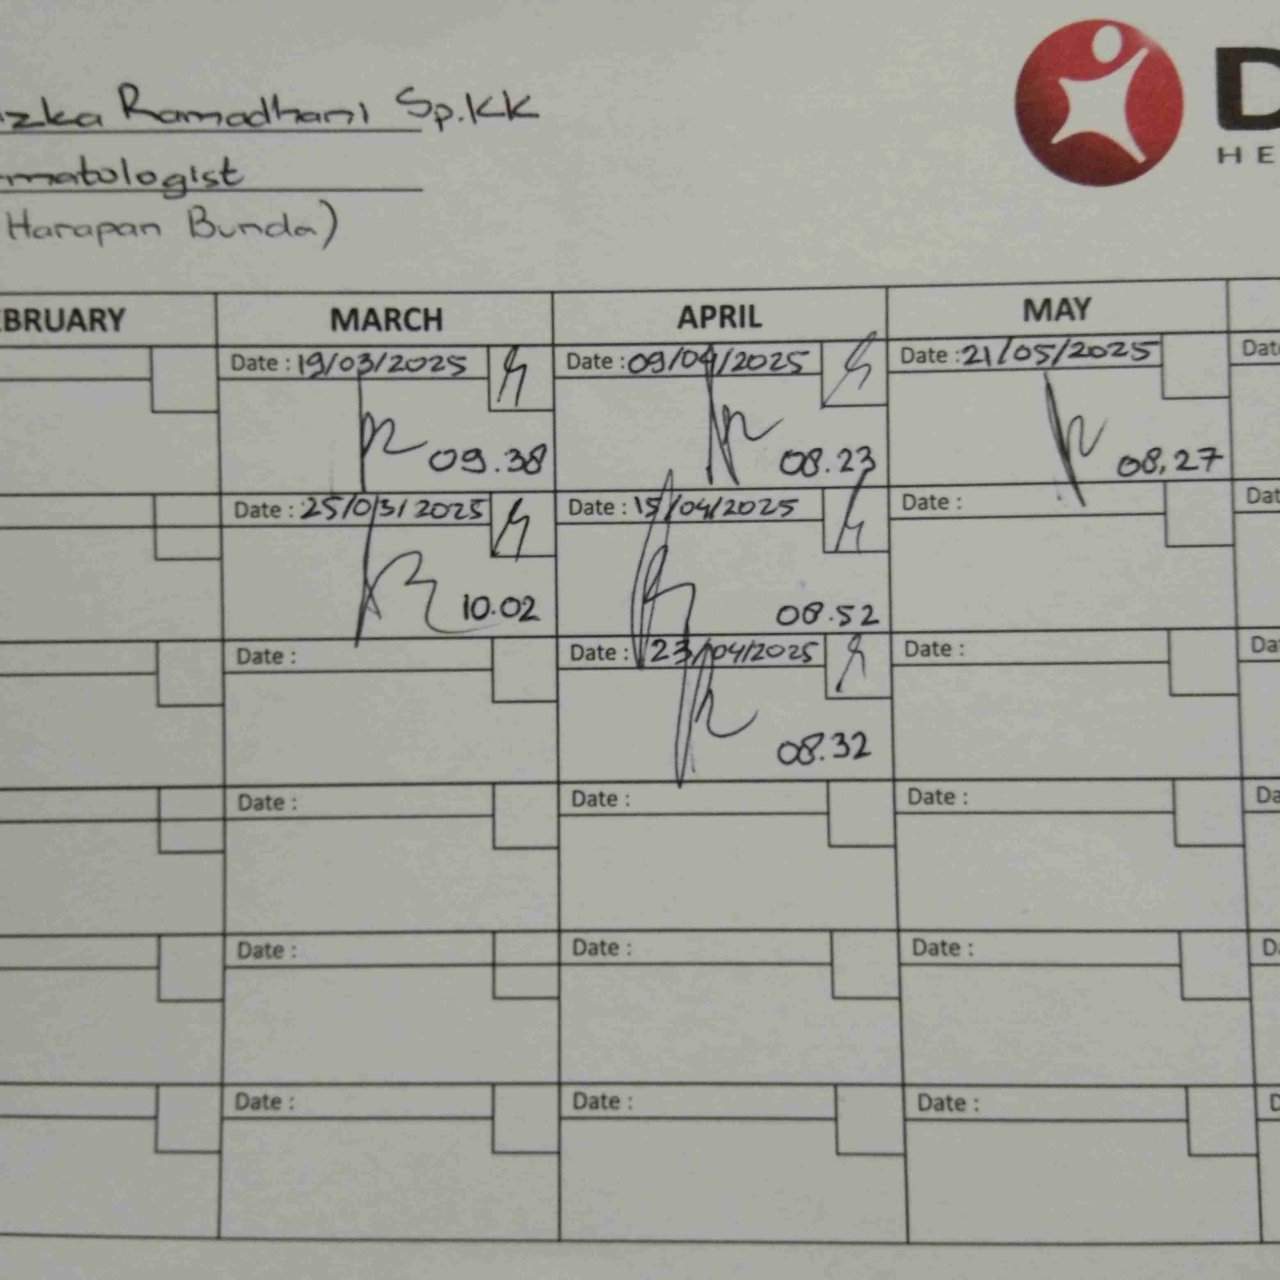 izka Ramadhani Sp.KK
rmatologist
Harapan Bunda)
D
HE
EBRUARY MARCH APRIL MAY
Date : 19/03/2025 Date : 09/04/2025 Date : 21/05/2025 Date
09.38 08.23 08,27
Date : 25/03/2025 Date : 15/04/2025 Date : Dat
10.02 08.52
Date : Date : 23/04/2025 Date : Da
08.32
Date : Date : Date : Da
Date : Date : Date : D
Date : Date : Date : D